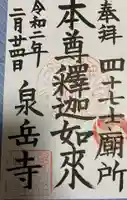 奉拝 四十七士廟所
本尊釋迦如来
令和二年
二月廿四日
泉岳寺